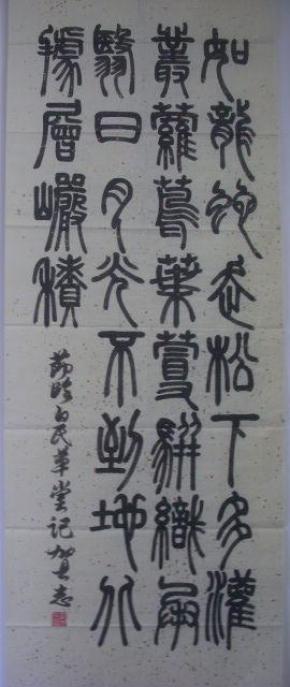 如龍蛇走松下多灌
叢蘿蔦葉蔓駢織承
翳日月光不到地
據層巖積
節臨白氏草堂記